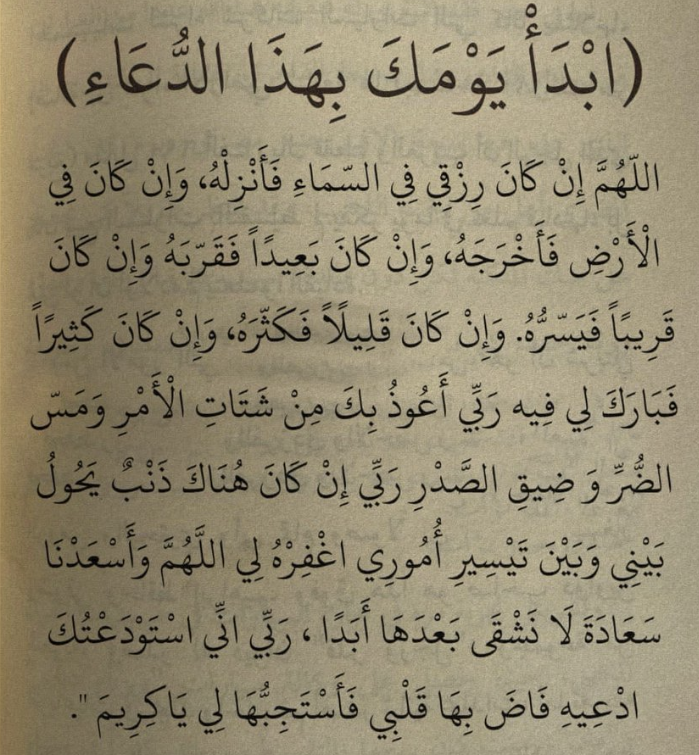 (ابْدَأْ يَوْمَكَ بِهَذَا الدُّعَاءِ)
اللّهُمَّ إِنْ كَانَ رِزْقِي فِي السّمَاءِ فَأَنْزِلْهُ، وَإِنْ كَانَ فِي
الْأَرْضِ فَأَخْرَجَهُ، وَإِنْ كَانَ بَعِيدًاً فَقَرّبَهُ وَإِنْ كَانَ
قَرِيبًاً فَيَسّرُّهُ. وَإِنْ كَانَ قَلِيلًاً فَكَثّرَهُ، وَإِنْ كَانَ كَثِيرًاً
فَبَارَكَ لِي فِيه رَبِّي أَعُوذُ بِكَ مِنْ شَتَاتِ الْأَمْرِ وَمَسّ
الضُّرِّ وَ ضِيقِ الصَّدْرِ رَبِّي إِنْ كَانَ هُنَاكَ ذَنْبٌ يَحُولُ
بَيْنِي وَبَيْنَ تَيْسِيرِ أُمُورِي اغْفِرْهُ لِي اللَّهُمَّ وَأَسْعَدْنَا
سَعَادَةَ لَا نَشْقَى بَعْدَهَا أَبَدًا ، رَبِّي انِّي اسْتَوْدَعْتُكَ
ادْعِيهِ فَاضَ بِهَا قَلْبِي فَأَسْتَجِبُّهَا لِي يَاكِرِيمَ ".